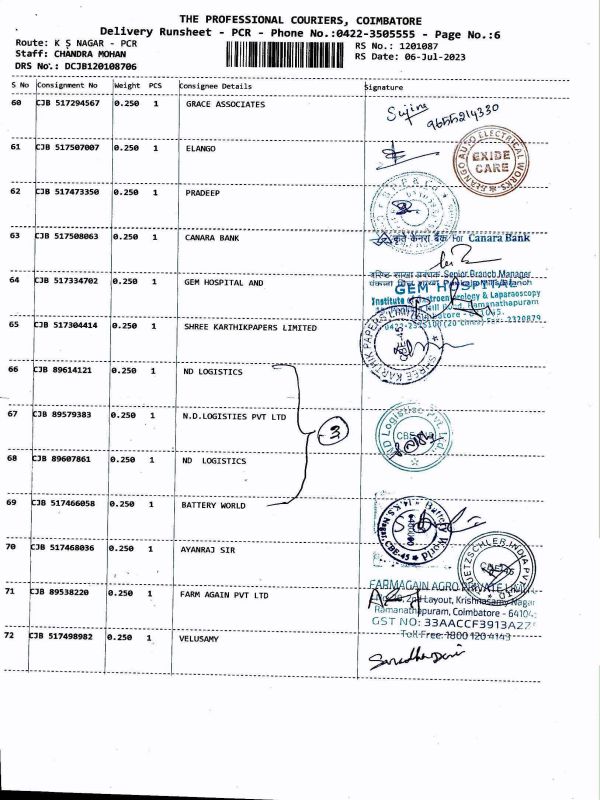 THE PROFESSIONAL COURIERS, COIMBATORE
Delivery Runsheet - PCR - Phone No.:0422-3505555 - Page No.:6
Route: K S NAGAR - PCR
RS No.: 1201087
Staff: CHANDRA MOHAN
RS Date: 06-Jul-2023
DRS No.: DCJB120108706
S No Consignment No Weight PCS Consignee Details Signature
60 CJB 517294567 0.250 1 GRACE ASSOCIATES
9655214330
61 CJB 517507007 0.250 1 ELANGO
ELANGO AUTO ELECTRICAL WORKS
EXIDE
CARE
62 CJB 517473350 0.250 1 PRADEEP
63 CJB 517508063 0.250 1 CANARA BANK
कृते केनरा बैंक For Canara Bank
Senior Branch Manager
64 CJB 517334702 0.250 1 GEM HOSPITAL AND
GEM HOSPITAL
Institute of Gastroenterology & Laparoscopy
Ramanathapuram
65 CJB 517304414 0.250 1 SHREE KARTHIKPAPERS LIMITED
SHREE KARTHIK PAPERS
66 CJB 89614121 0.250 1 ND LOGISTICS
67 CJB 89579383 0.250 1 N.D.LOGISTIES PVT LTD
3
ND Logistics Pvt. Ltd.
68 CJB 89607861 0.250 1 ND LOGISTICS
69 CJB 517466058 0.250 1 BATTERY WORLD
70 CJB 517468036 0.250 1 AYANRAJ SIR
71 CJB 89538220 0.250 1 FARM AGAIN PVT LTD
FARMAGAIN AGRO PRIVATE LIMIT
2nd Layout, Krishnasamy Nagar
Ramanathapuram, Coimbatore - 64104
GST NO: 33AACCF3913A2Z
Toll Free: 1800 120 4143
72 CJB 517498982 0.250 1 VELUSAMY